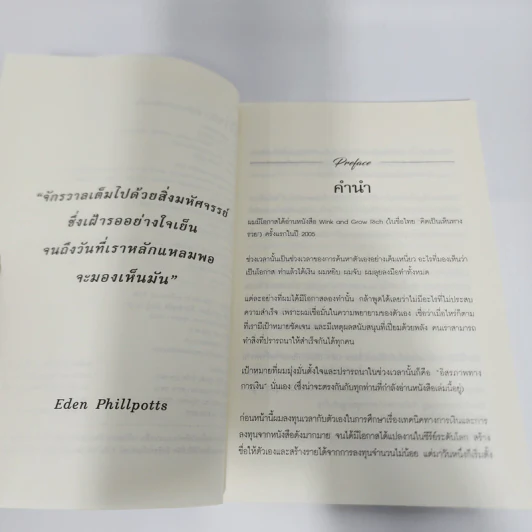 “จักรวาลเต็มไปด้วยสิ่งมหัศจรรย์
ซึ่งเฝ้ารออย่างใจเย็น
จนถึงวันที่เราหลักแหลมพอ
จะมองเห็นมัน”
Eden Phillpotts
Preface
คำนำ
ผมมีโอกาสได้อ่านหนังสือ Wink and Grow Rich (ในชื่อไทย “คิดเป็นเห็นทาง
รวย”) ครั้งแรกในปี 2005
ช่วงเวลานั้นเป็นช่วงเวลาของการค้นหาตัวเองอย่างเต็มเหนี่ยว อะไรที่มองเห็นว่า
เป็นโอกาส ทำแล้วได้เงิน ผมหยิบ ผมจับ ผมลุยลงมือทำทั้งหมด
แต่ละอย่างที่ผมได้มีโอกาสลองทำนั้น กล้าพูดได้เลยว่าไม่มีอะไรที่ไม่ประสบ
ความสำเร็จ เพราะผมเชื่อมั่นในความพยายามของตัวเอง เชื่อว่าเมื่อไหร่ก็ตาม
ที่เรามีเป้าหมายชัดเจน และมีเหตุผลสนับสนุนที่เปี่ยมด้วยพลัง คนเราสามารถ
ทำสิ่งที่ปรารถนาให้สำเร็จกันได้ทุกคน
เป้าหมายที่ผมมุ่งมั่นตั้งใจและปรารถนาในช่วงเวลานั้นก็คือ “อิสรภาพทาง
การเงิน” นั่นเอง (ซึ่งน่าจะตรงกันกับทุกท่านที่กำลังอ่านหนังสือเล่มนี้อยู่)
ก่อนหน้านี้ผมลงทุนเวลากับตัวเองในการศึกษาเรื่องเทคนิคทางการเงินและการ
ลงทุนจากหนังสือดังมากมาย จนได้มีโอกาสได้แปลงานในซีรีย์ระดับโลก สร้าง
ชื่อให้ตัวเองและสร้างรายได้จากการลงทุนจำนวนไม่น้อย แต่มาวันหนึ่งก็เริ่มตั้ง